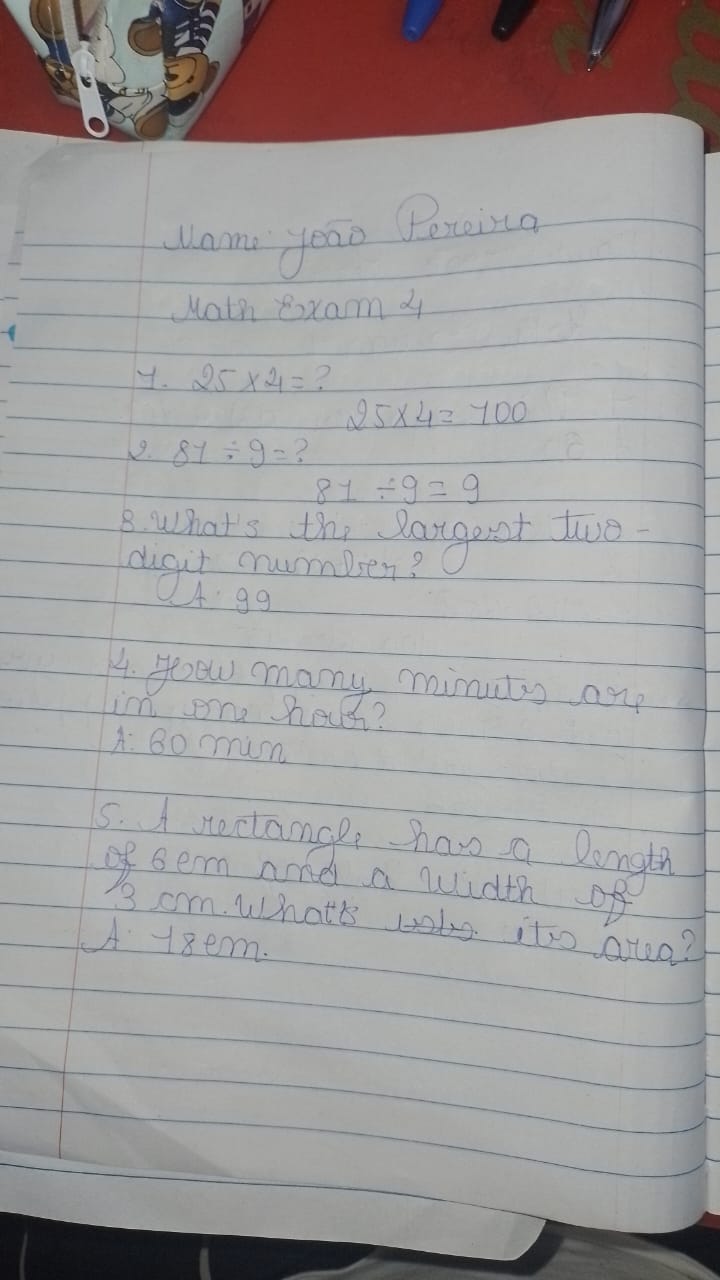 Name: João Pereira
Math Exam 4
1. 25 x 4 = ?
25 x 4 = 100
2. 81 ÷ 9 = ?
81 ÷ 9 = 9
3. What's the largest two-
digit number?
A: 99
4. How many minutes are
in one hour?
A: 60 min
5. A rectangle has a length
of 6cm and a width of
3 cm. What's its area?
A: 18cm.